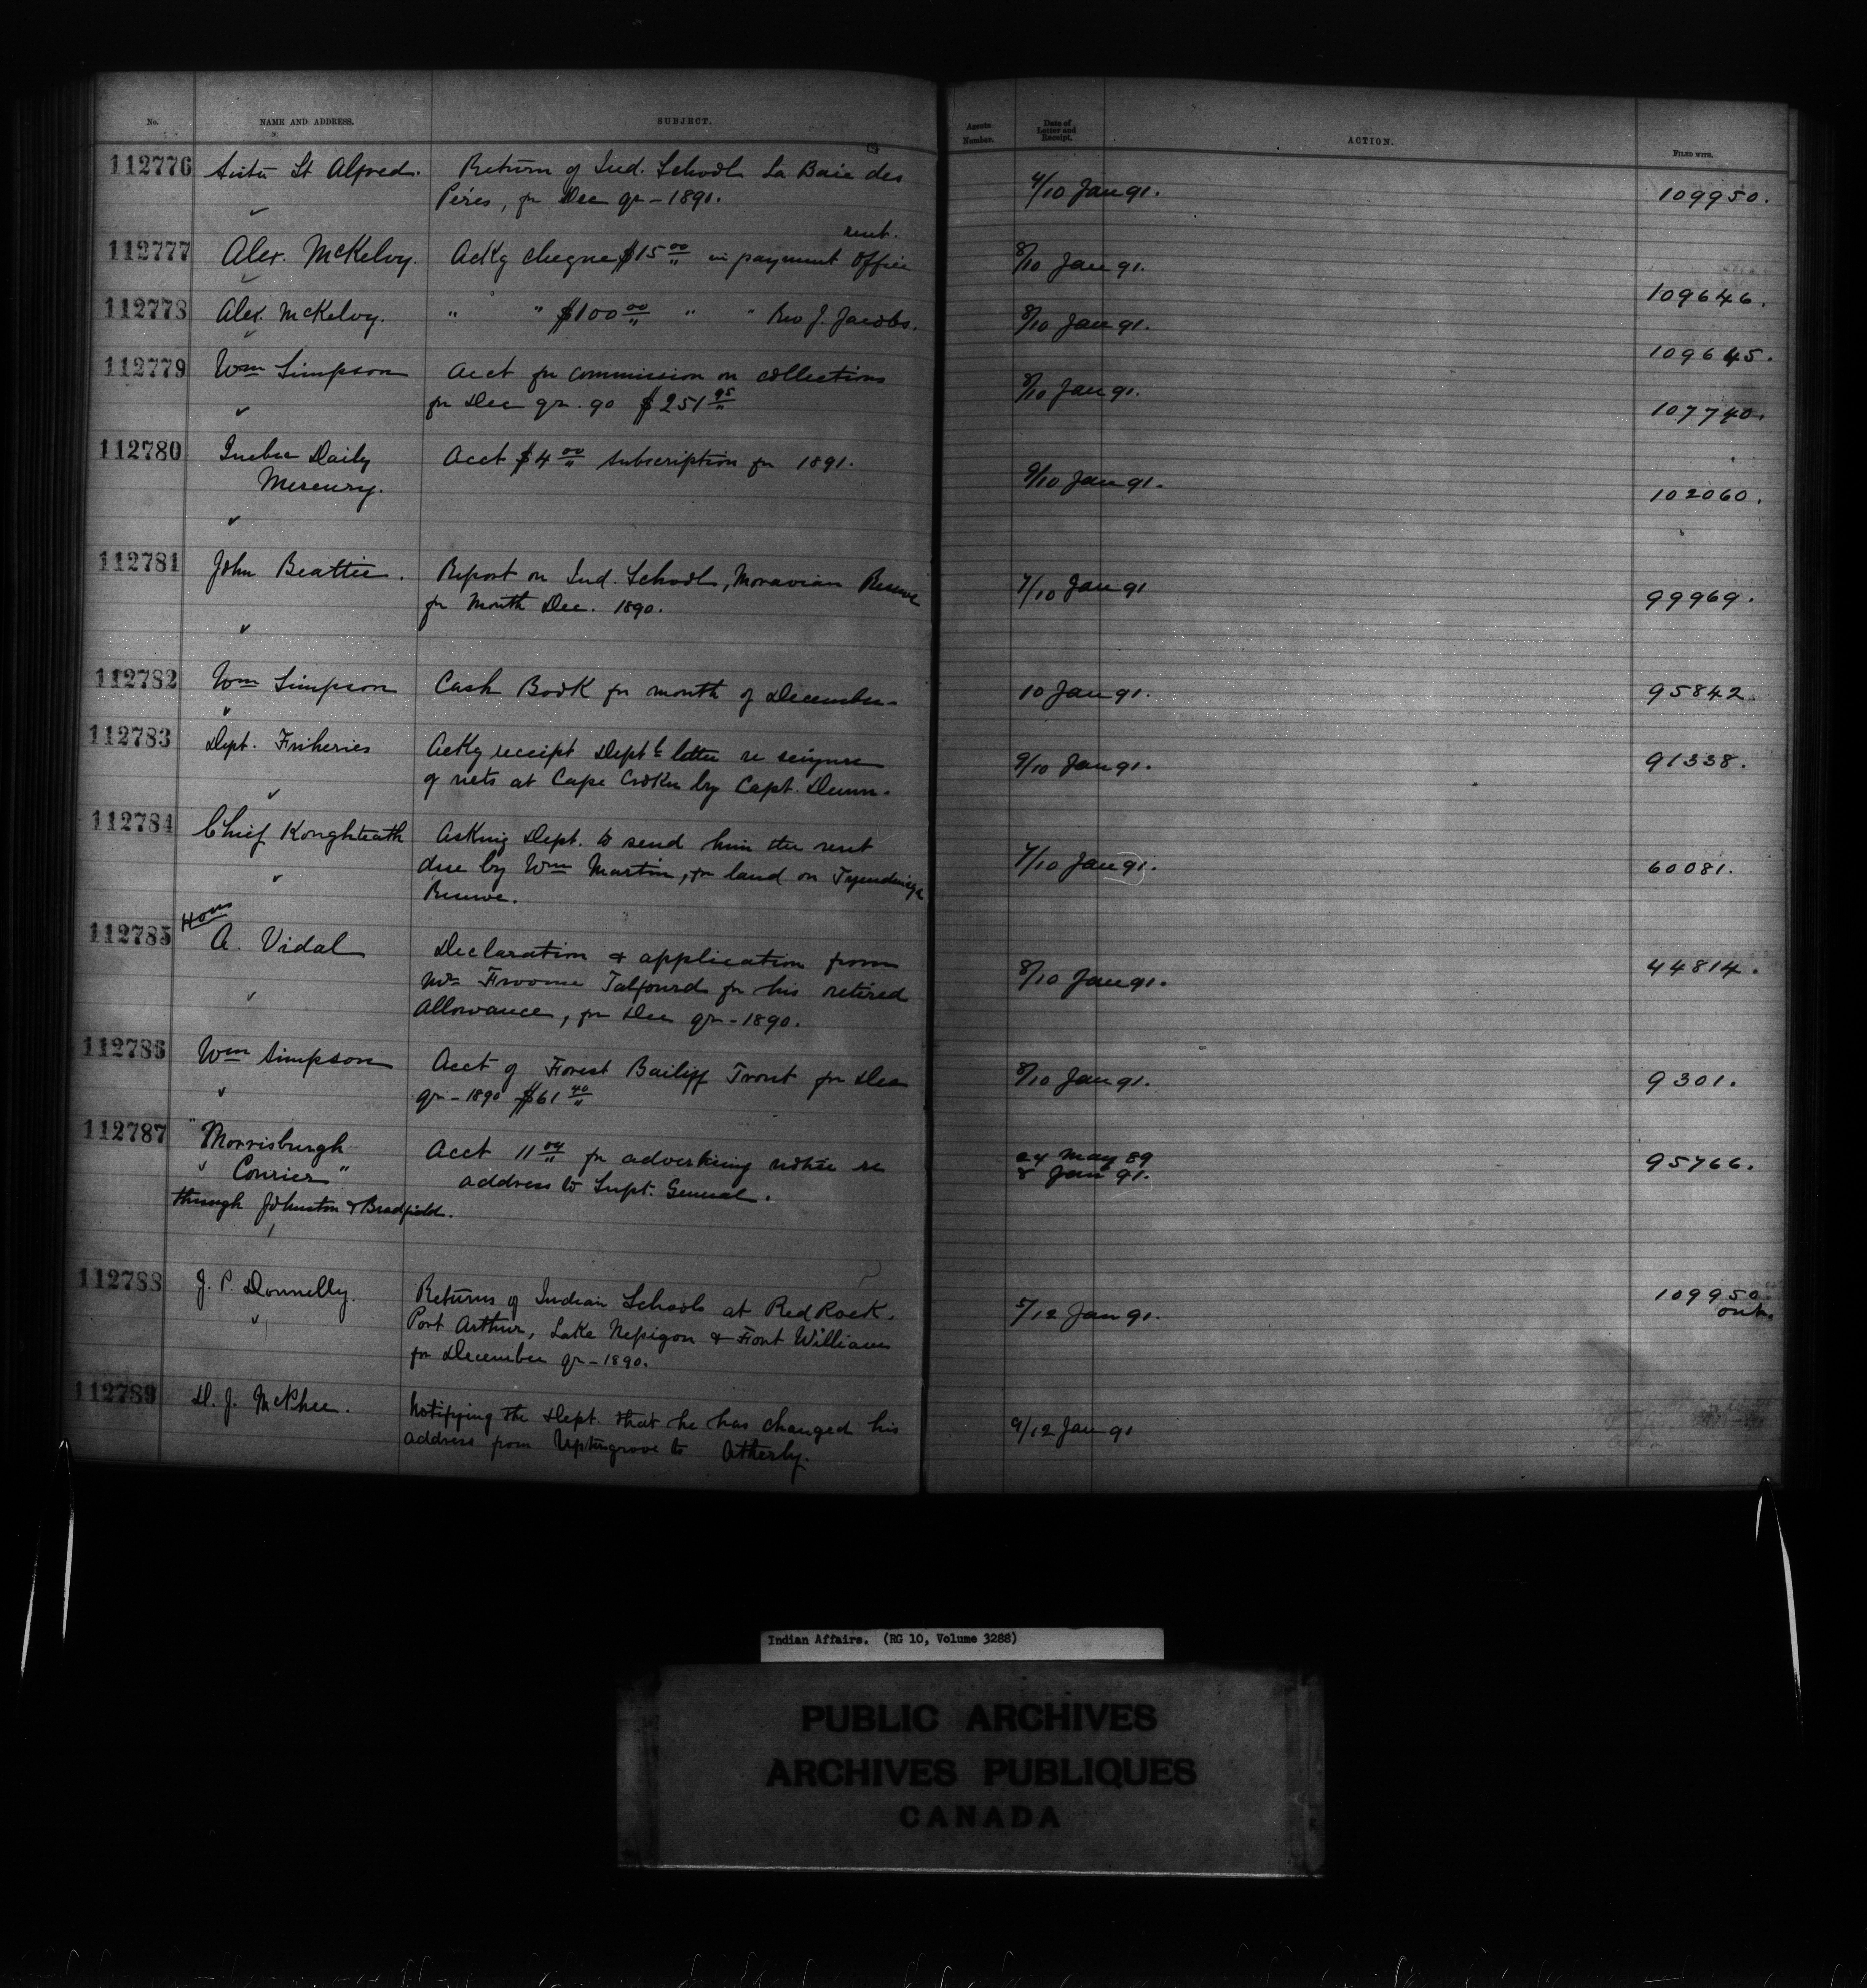 No. NAME AND ADDRESS. SUBJECT. Agents Number. Date of Letter and Receipt. ACTION. FILED WITH.
112776 Sister St Alfred. Return of Ind. School La Baie des 4/10 Jan 91. 109950.
Péres, for Dec qr - 1890.
rent.
112777 Alex. McKelvy. Ackg cheque $15 00 in payment Office 8/10 Jan 91. 109646.
112778 Alex. McKelvy. " " $100 00 " " Rev J. Jacobs. 8/10 Jan 91. 109645.
112779 Wm Simpson Acct for commission on collections 8/10 Jan 91. 107740.
for Dec qr. 90 $251 95
112780 Quebec Daily Acct $4 00 subscription for 1891. 9/10 Jan 91. 102060.
Mercury.
112781 John Beattie. Report on Ind. School, Moravian Reserve 7/10 Jan 91 99969.
for Month Dec. 1890.
112782 Wm Simpson Cash Book for month of December - 10 Jan 91. 95842
112783 Dept. Fisheries Ackg receipt Deptl letter re seizure 9/10 Jan 91. 91338.
of nets at Cape Croker by Capt. Dunn.
112784 Chief Konghteath Asking Dept. to send him the rent 7/10 Jan 91. 60081.
due by Wm Martin, for land on Tyendinaga
Reserve.
112785 Hon A. Vidal Declaration & application from 8/10 Jan 91. 44814.
Mr Froome Talfourd for his retired
Allowance, for Dec qr - 1890.
112786 Wm Simpson Acct of Forest Bailiff Trout for Dec 8/10 Jan 91. 9301.
qr - 1890 $61 40
112787 "Morrisburgh Acct 11 04 for advertising notice re 24 May 89 95766.
Courier" address to Supt. General. 8 Jan 91.
through Johnston & Bradfield.
112788 J. P. Donnelly. Returns of Indian Schools at Red Rock, 5/12 Jan 91. 109950
Port Arthur, Lake Nepigon & Fort William out.
for December qr - 1890.
112789 D. J. McPhee. Notifying the Dept. that he has changed his 9/12 Jan 91
address from Uptergrove to Atherly.
Indian Affairs. (RG 10, Volume 3288)
PUBLIC ARCHIVES
ARCHIVES PUBLIQUES
CANADA